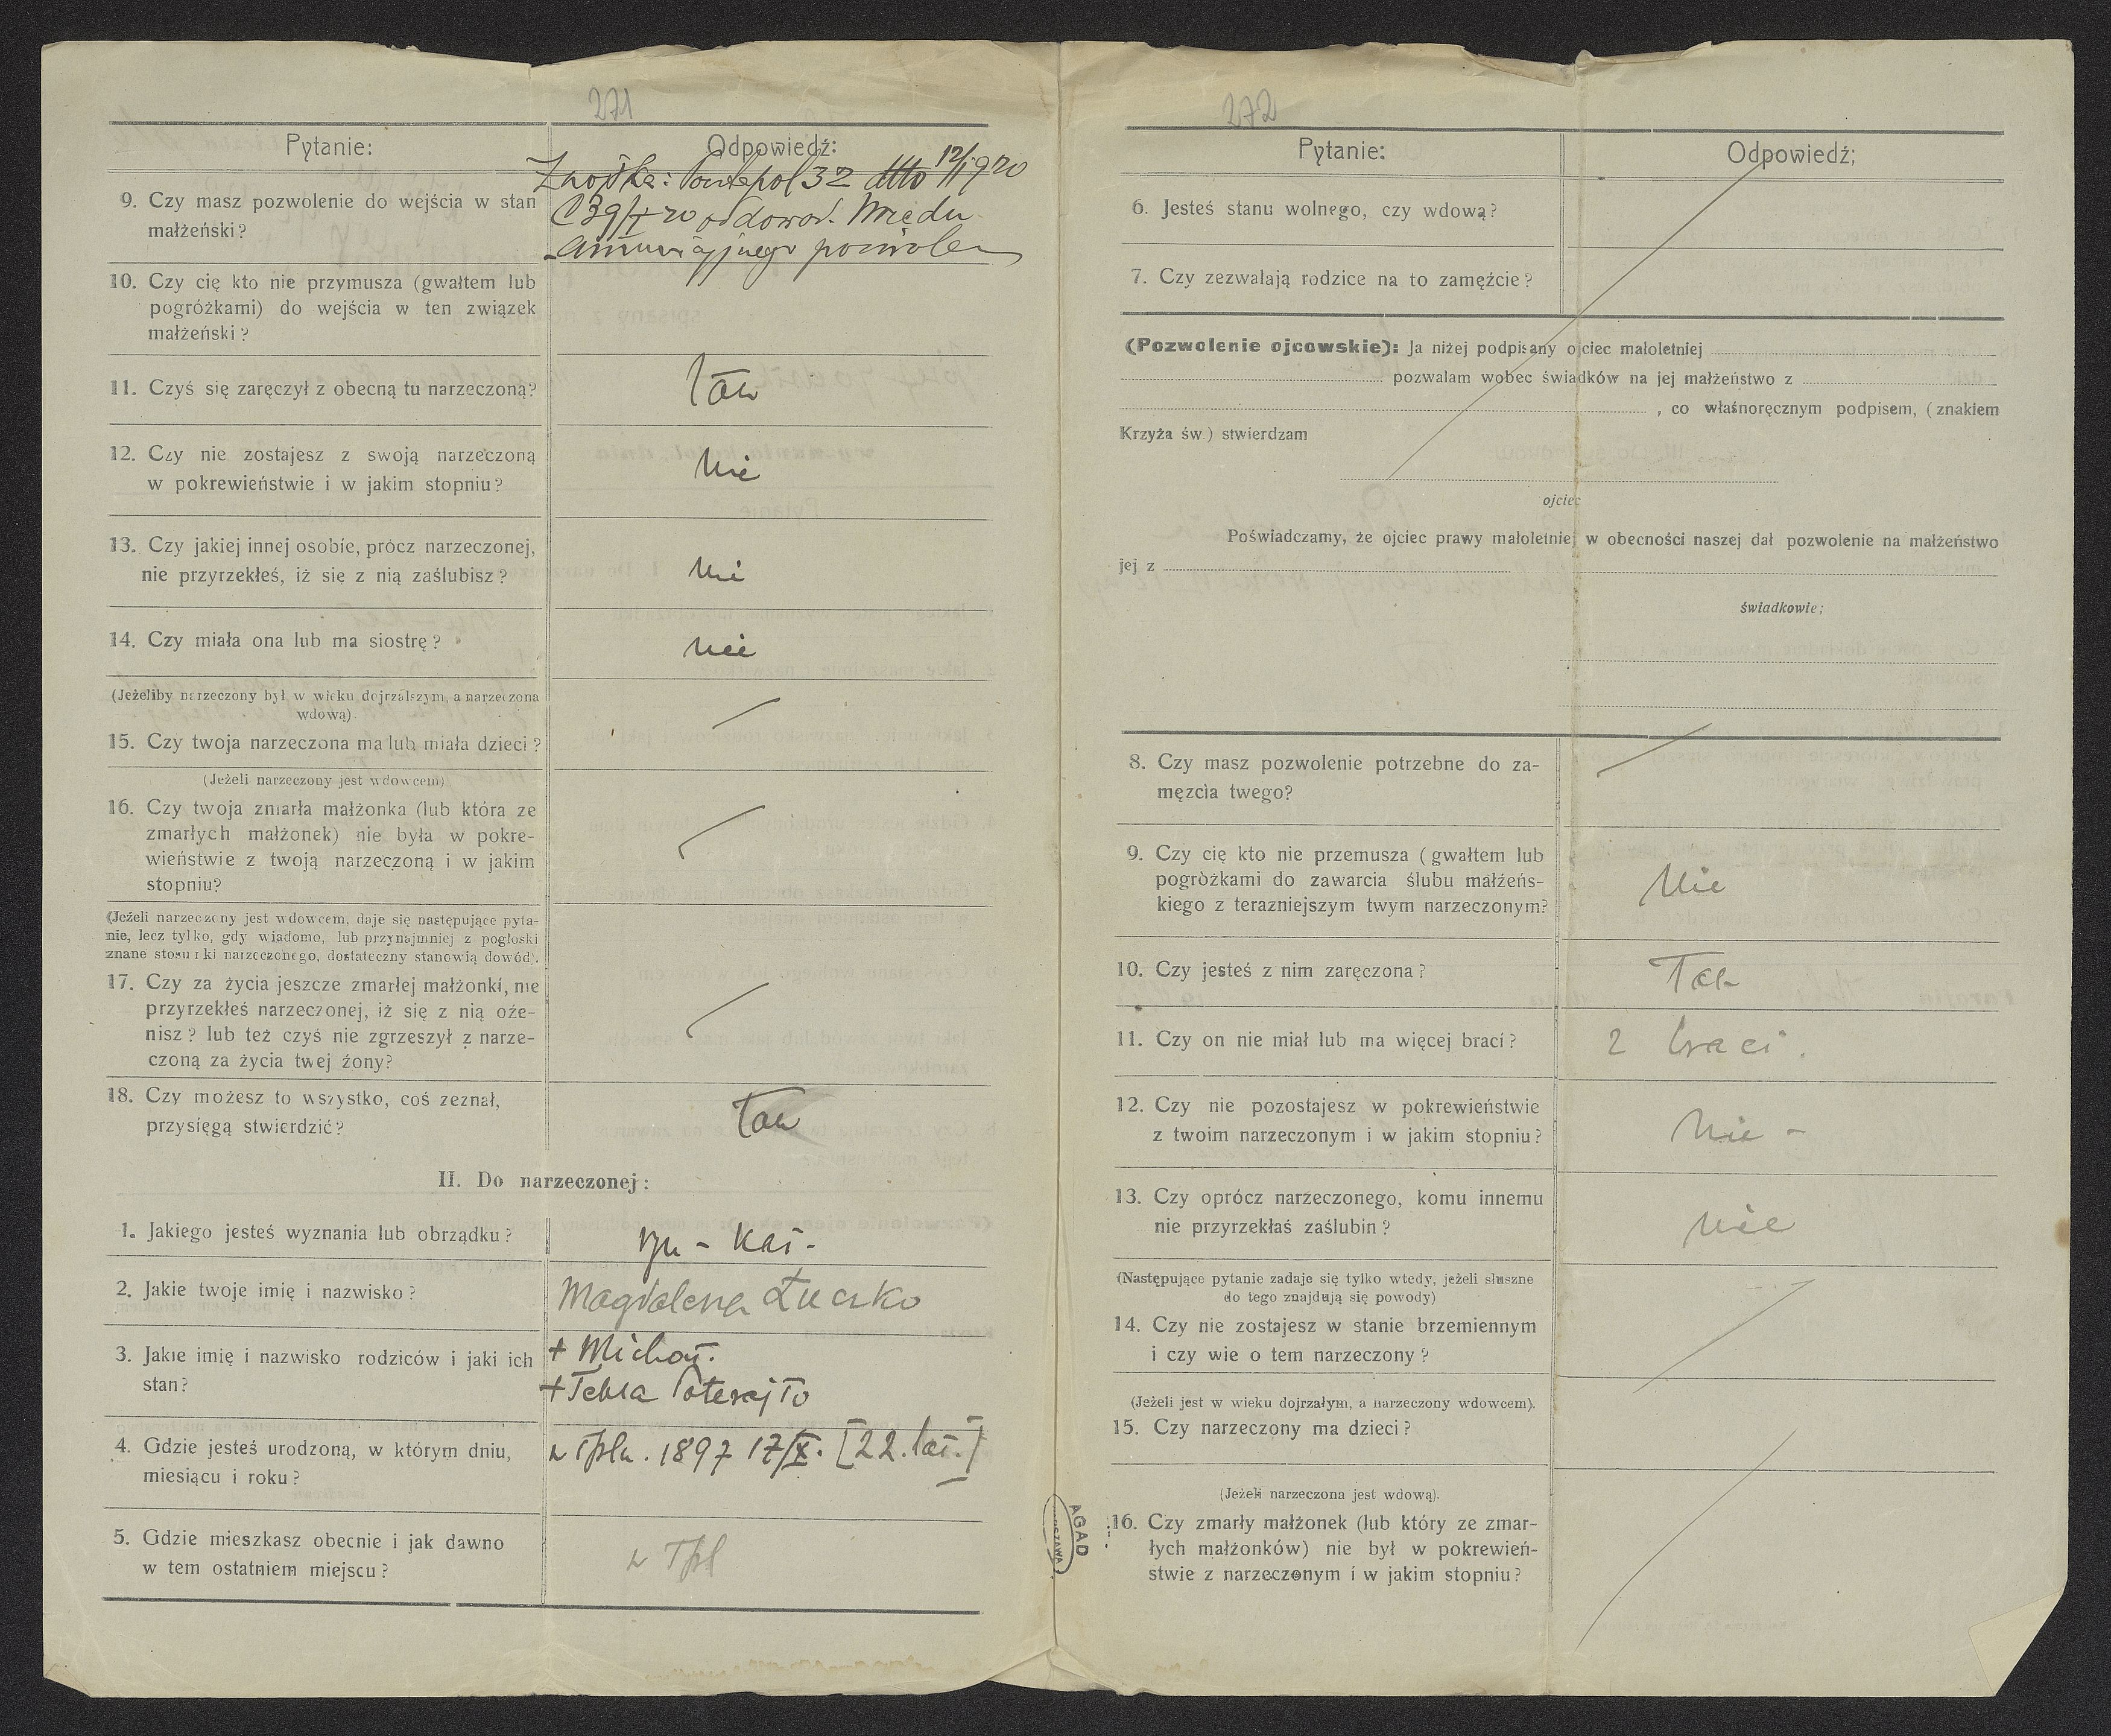 271
Pytanie:
Odpowiedź:
9. Czy masz pozwolenie do wejścia w stan
małżeński?
12/I 920
10. Czy cię kto nie przymusza (gwałtem lub
pogróżkami) do wejścia w ten związek
małżeński?
11. Czyś się zaręczył z obecną tu narzeczoną?
Tak
12. Czy nie zostajesz z swoją narzeczoną
w pokrewieństwie i w jakim stopniu?
Nie
13. Czy jakiej innej osobie, prócz narzeczonej,
nie przyrzekłeś, iż się z nią zaślubisz?
Nie
14. Czy miała ona lub ma siostrę?
Nie
(Jeżeliby narzeczony był w wieku dojrzalszym, a narzeczona
wdową)
15. Czy twoja narzeczona ma lub miała dzieci?
(Jeżeli narzeczony jest wdowcem)
16. Czy twoja zmarła małżonka (lub która ze
zmarłych małżonek) nie była w pokre-
wieństwie z twoją narzeczoną i w jakim
stopniu?
(Jeżeli narzeczony jest wdowcem, daje się następujące pyta-
nie, lecz tylko, gdy wiadomo, lub przynajmniej z pogłoski
znane stosunki narzeczonego, dostateczny stanowią dowód).
17. Czy za życia jeszcze zmarłej małżonki, nie
przyrzekłeś narzeczonej, iż się z nią oże-
nisz? lub też czyś nie zgrzeszył z narze-
czoną za życia twej żony?
18. Czy możesz to wszystko, coś zeznał,
przysięgą stwierdzić?
Tak
II. Do narzeczonej:
1. Jakiego jesteś wyznania lub obrządku?
rzm - kat -
2. Jakie twoje imię i nazwisko?
Magdalena Łuczko
3. Jakie imię i nazwisko rodziców i jaki ich
stan?
+ Michał.
+ Tekla
4. Gdzie jesteś urodzoną, w którym dniu,
miesiącu i roku?
w Tplu. 1897 17/X. [22. lat.]
5. Gdzie mieszkasz obecnie i jak dawno
w tem ostatniem miejscu?
w Tpl
AGAD
WARSZAWA
272
Pytanie:
Odpowiedź;
6. Jesteś stanu wolnego, czy wdową?
7. Czy zezwalają rodzice na to zamęźcie?
(Pozwolenie ojcowskie): Ja niżej podpisany ojciec małoletniej
pozwalam wobec świadków na jej małżeństwo z
, co własnoręcznym podpisem, (znakiem
Krzyża św.) stwierdzam
ojciec
Poświadczamy, że ojciec prawy małoletniej w obecności naszej dał pozwolenie na małżeństwo
jej z
świadkowie;
8. Czy masz pozwolenie potrzebne do za-
męzcia twego?
9. Czy cię kto nie przemusza (gwałtem lub
pogròżkami do zawarcia ślubu małżeńs-
kiego z terazniejszym twym narzeczonym?
Nie
10. Czy jesteś z nim zaręczona?
Tak
11. Czy on nie miał lub ma więcej braci?
2 braci.
12. Czy nie pozostajesz w pokrewieństwie
z twoim narzeczonym i w jakim stopniu?
Nie -
13. Czy oprócz narzeczonego, komu innemu
nie przyrzekłaś zaślubin?
Nie
(Następujące pytanie zadaje się tylko wtedy, jeżeli słuszne
do tego znajdują się powody)
14. Czy nie zostajesz w stanie brzemiennym
i czy wie o tem narzeczony?
(Jeżeli jest w wieku dojrzałym, a narzeczony wdowcem).
15. Czy narzeczony ma dzieci?
(Jeżeli narzeczona jest wdową).
16. Czy zmarły małżonek (lub który ze zmar-
łych małżonków) nie był w pokrewień-
stwie z narzeczonym i w jakim stopniu?